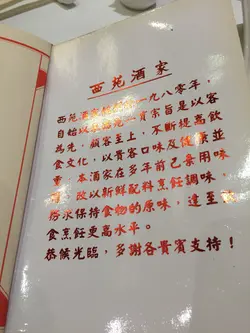 西苑酒家
西苑酒家始於一九八零年，
自始以來一貫宗旨是以客
為先，顧客至上，不斷提高飲
食文化，以貴客口味及健康並
重，本酒家在多年前已棄用味
，故以新鮮配料烹飪調味，
務求保持食物的原味，達至飲
食烹飪更高水平。
恭候光臨，多謝各貴賓支持！